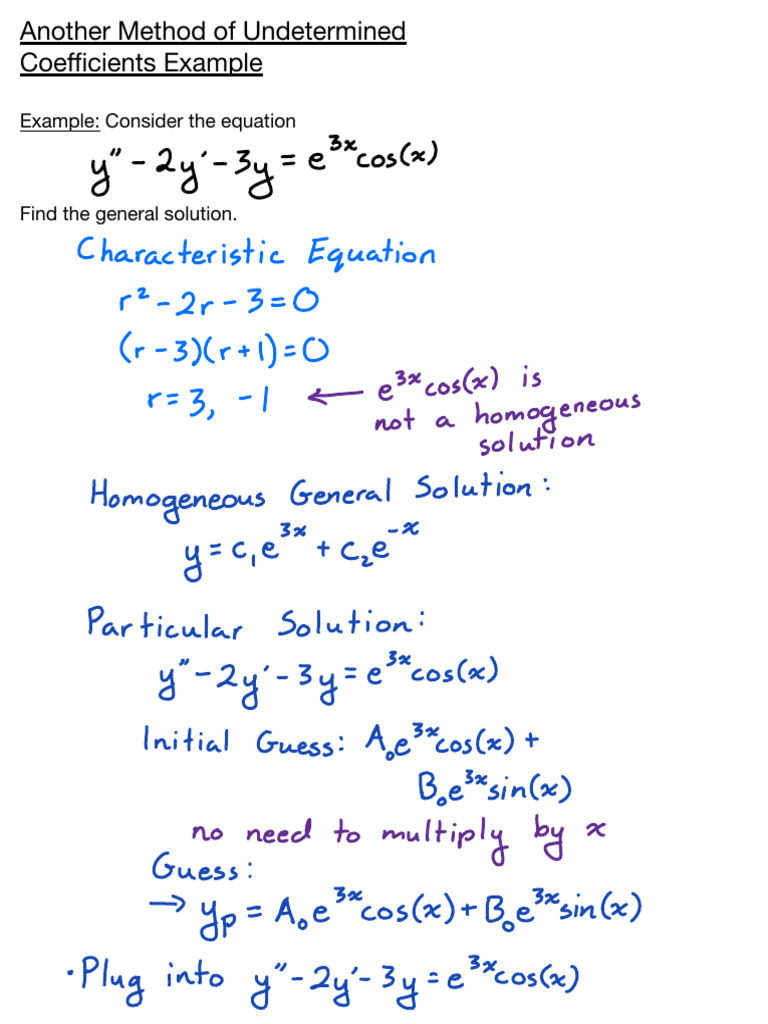 Another Method of Undetermined
Coefficients Example
Example: Consider the equation
y″ - 2y′ - 3y = e³ˣcos(x)
Find the general solution.
Characteristic Equation
r² - 2r - 3 = 0
(r - 3)(r + 1) = 0
r = 3, -1 ← e³ˣcos(x) is
not a homogeneous
solution
Homogeneous General Solution:
y = c₁e³ˣ + c₂e⁻ˣ
Particular Solution:
y″ - 2y′ - 3y = e³ˣcos(x)
Initial Guess: A₀e³ˣcos(x) +
B₀e³ˣsin(x)
no need to multiply by x
Guess:
→ yₚ = A₀e³ˣcos(x) + B₀e³ˣsin(x)
• Plug into y″ - 2y′ - 3y = e³ˣcos(x)